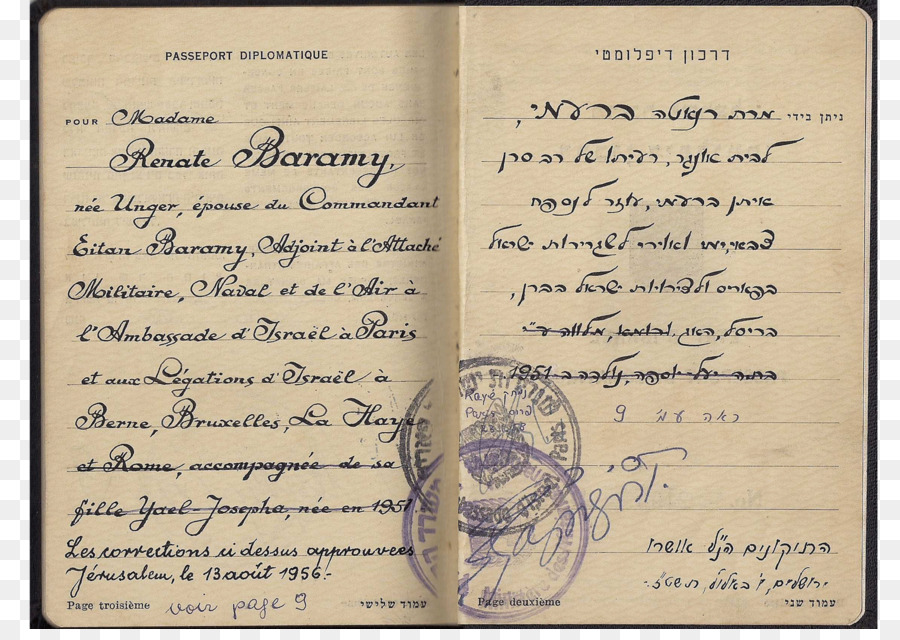 PASSEPORT DIPLOMATIQUE
POUR Madame
Renate Baramy,
née Unger, épouse du Commandant
Eitan Baramy, Adjoint à l'Attaché
Militaire, Naval et de l'Air à
l'Ambassade d'Israël à Paris
et aux Légations d'Israël à
Berne, Bruxelles, La Haye
et Rome, accompagnée de sa
fille Yael-Josepha, née en 1951
Les corrections ci dessus approuvées
Jérusalem, le 13 août 1956.-
Page troisième voir page 9 עמוד שלישי
דרכון דיפלומטי
ניתן בידי מרת רנאטה ברעמי,
לבית אונגר, רעיתו של רב סרן
איתן ברעמי, עוזר לנספח
צבאי, ימי ואוירי לשגרירות ישראל
בפאריס ולצירויות ישראל בברן,
בריסל, האג, ורומא, מלווה ע״י
בתה יעל-יוספה, נולדה ב-1951
Rayé
Paris
ראה עמ' 9
התיקונים הנ״ל אושרו
ירושלים, ו' באלול, תשט״ז
Page deuxième עמוד שני